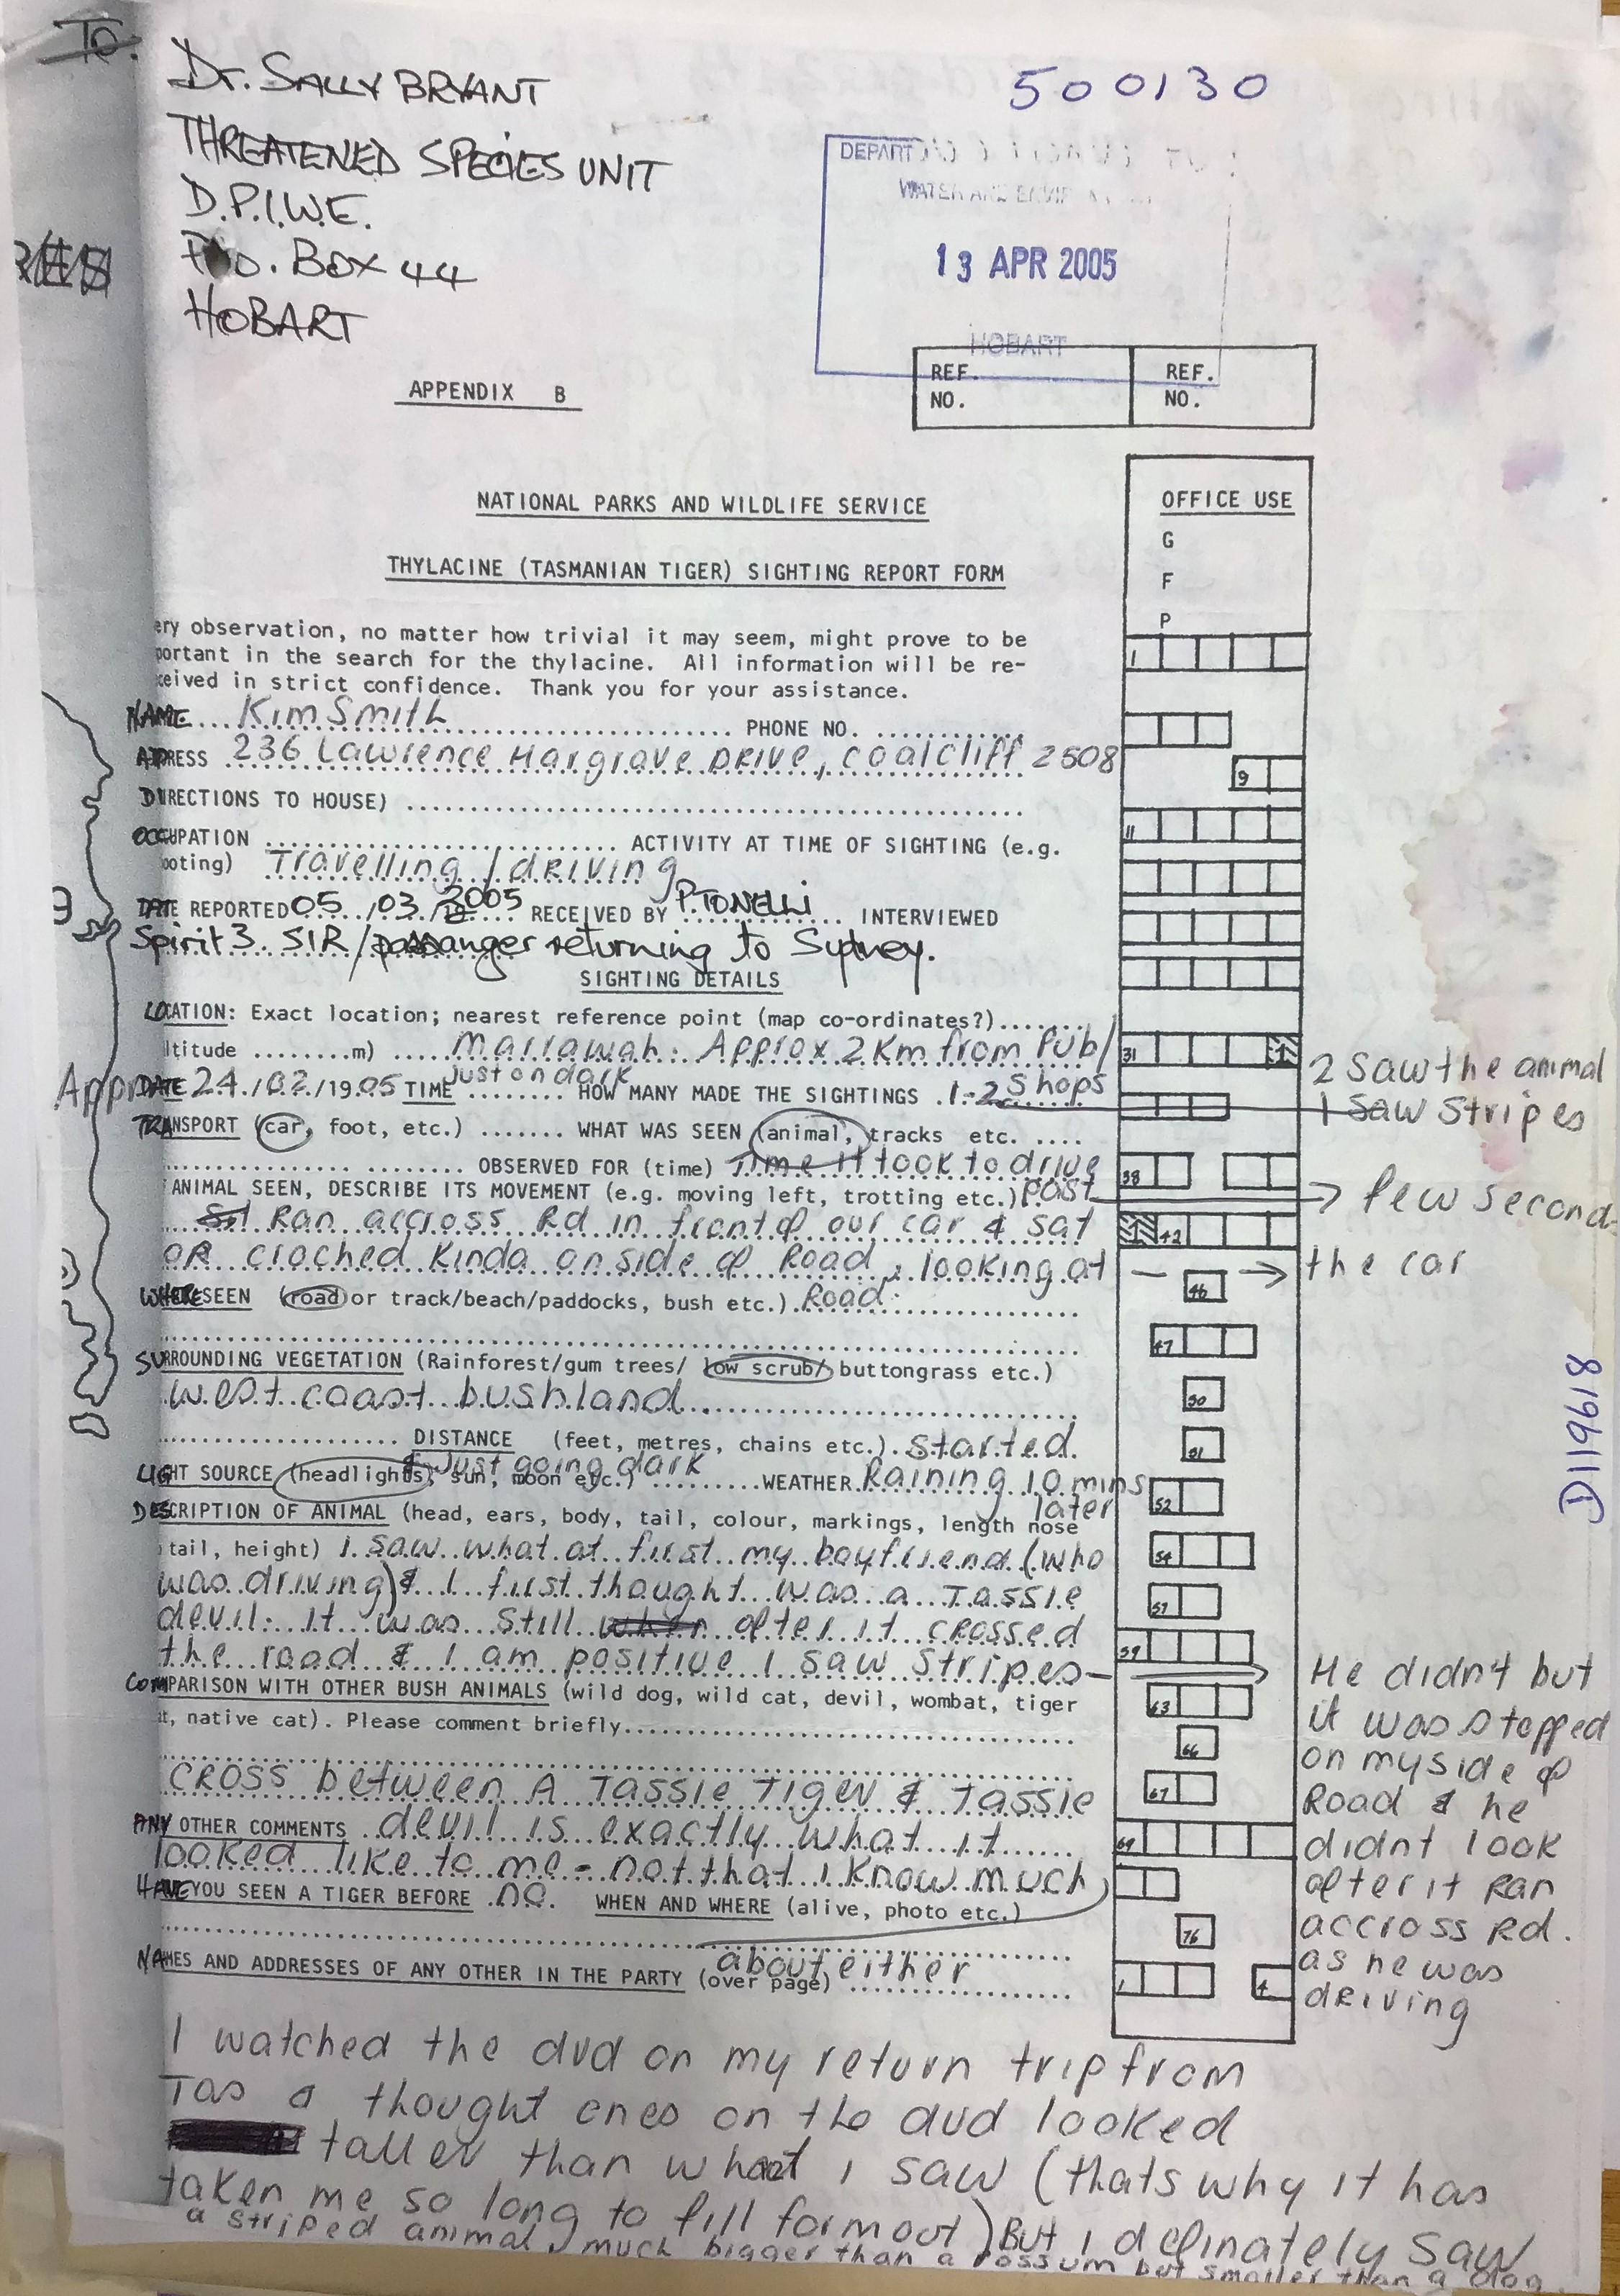 To:
Dr. SALLY BRYANT
THREATENED SPECIES UNIT
D.P.I.W.E.
P.O. BOX 44
HOBART
500130
DEPART
WATER AND ENVIR
13 APR 2005
HOBART
REF. NO.
REF. NO.
APPENDIX B
NATIONAL PARKS AND WILDLIFE SERVICE
THYLACINE (TASMANIAN TIGER) SIGHTING REPORT FORM
OFFICE USE
G
F
P
ery observation, no matter how trivial it may seem, might prove to be
portant in the search for the thylacine. All information will be re-
ceived in strict confidence. Thank you for your assistance.
NAME Kim Smith PHONE NO.
ADDRESS 236 Lawrence Hargrave DRIVE, coalcliff 2508
DIRECTIONS TO HOUSE)
OCCUPATION ACTIVITY AT TIME OF SIGHTING (e.g.
ooting) Travelling / driving
DATE REPORTED 05/03/2005 RECEIVED BY P. TONELLI INTERVIEWED
Spirit 3. SIR/passanger returning to Sydney.
SIGHTING DETAILS
LOCATION: Exact location; nearest reference point (map co-ordinates?)
ltitude ........m) Marrawah: Approx 2 Km from Pub/
Shops
Appr DATE 24/02/1905 TIME just on dark HOW MANY MADE THE SIGHTINGS 1-2
2 Saw the animal
1 saw stripes
TRANSPORT (car, foot, etc.) WHAT WAS SEEN (animal, tracks etc.
OBSERVED FOR (time) Time it took to drive
past few second
ANIMAL SEEN, DESCRIBE ITS MOVEMENT (e.g. moving left, trotting etc.)
Ran accross Rd in front of our car & sat
OR croched kinda on side of Road, looking at the car
WHERE SEEN (road or track/beach/paddocks, bush etc.) Road
SURROUNDING VEGETATION (Rainforest/gum trees/ low scrub/ buttongrass etc.)
West coast bushland
DISTANCE (feet, metres, chains etc.) started
LIGHT SOURCE (headlights, sun, moon etc.) & just going dark WEATHER Raining 10 mins
later
DESCRIPTION OF ANIMAL (head, ears, body, tail, colour, markings, length nose
tail, height) I saw what at first my boyfriend (who
was driving) & I first thought was a Tassie
devil. it was still when after it crossed
the road & I am positive I saw stripes
He didn't but
it was stopped
on my side of
Road & he
didnt look
after it Ran
accross Rd.
as he was
driving
COMPARISON WITH OTHER BUSH ANIMALS (wild dog, wild cat, devil, wombat, tiger
at, native cat). Please comment briefly
CROSS between A Tassie Tiger & Tassie
ANY OTHER COMMENTS devil is exactly what it
looked like to me - not that I know much
HAVE YOU SEEN A TIGER BEFORE no. WHEN AND WHERE (alive, photo etc.)
about either
NAMES AND ADDRESSES OF ANY OTHER IN THE PARTY (over page)
I watched the dvd on my return trip from
Tas & thought ones on the dvd looked
taller than what I saw (thats why it has
taken me so long to fill form out) But I definately saw
a striped animal, much bigger than a possum but smaller than a dog
1
9
11
31
38
42
46
47
50
51
52
54
57
59
63
66
67
69
76
1
4
D119618